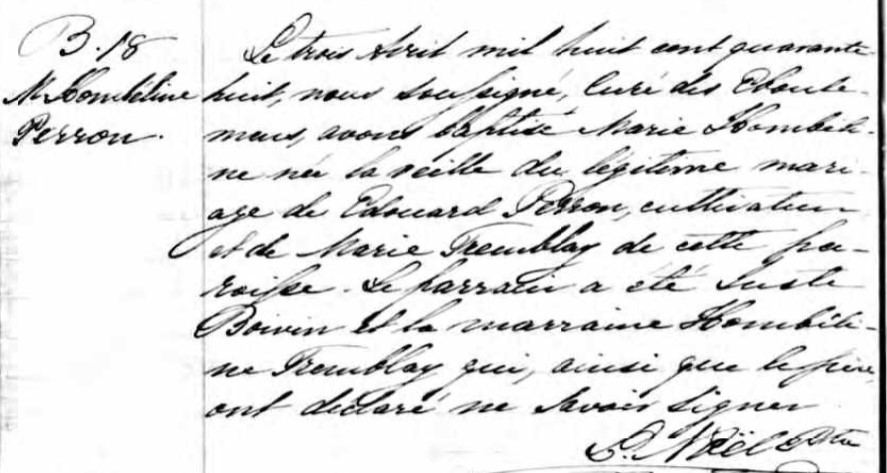 B. 18
M. Hombéline
Perron.
Le trois Avril mil huit cent quarante-
huit, nous soussigné, Curé des Eboule-
mens, avons baptisé Marie Hombéli-
ne née la veille du légitime mari-
age de Edouard Perron, cultivateur
et de Marie Tremblay de cette pa-
roisse. Le parrain a été Juste
Boivin et la marraine Hombéli-
ne Tremblay qui, ainsi que le père,
ont déclaré ne savoir signer
Noël Ptre